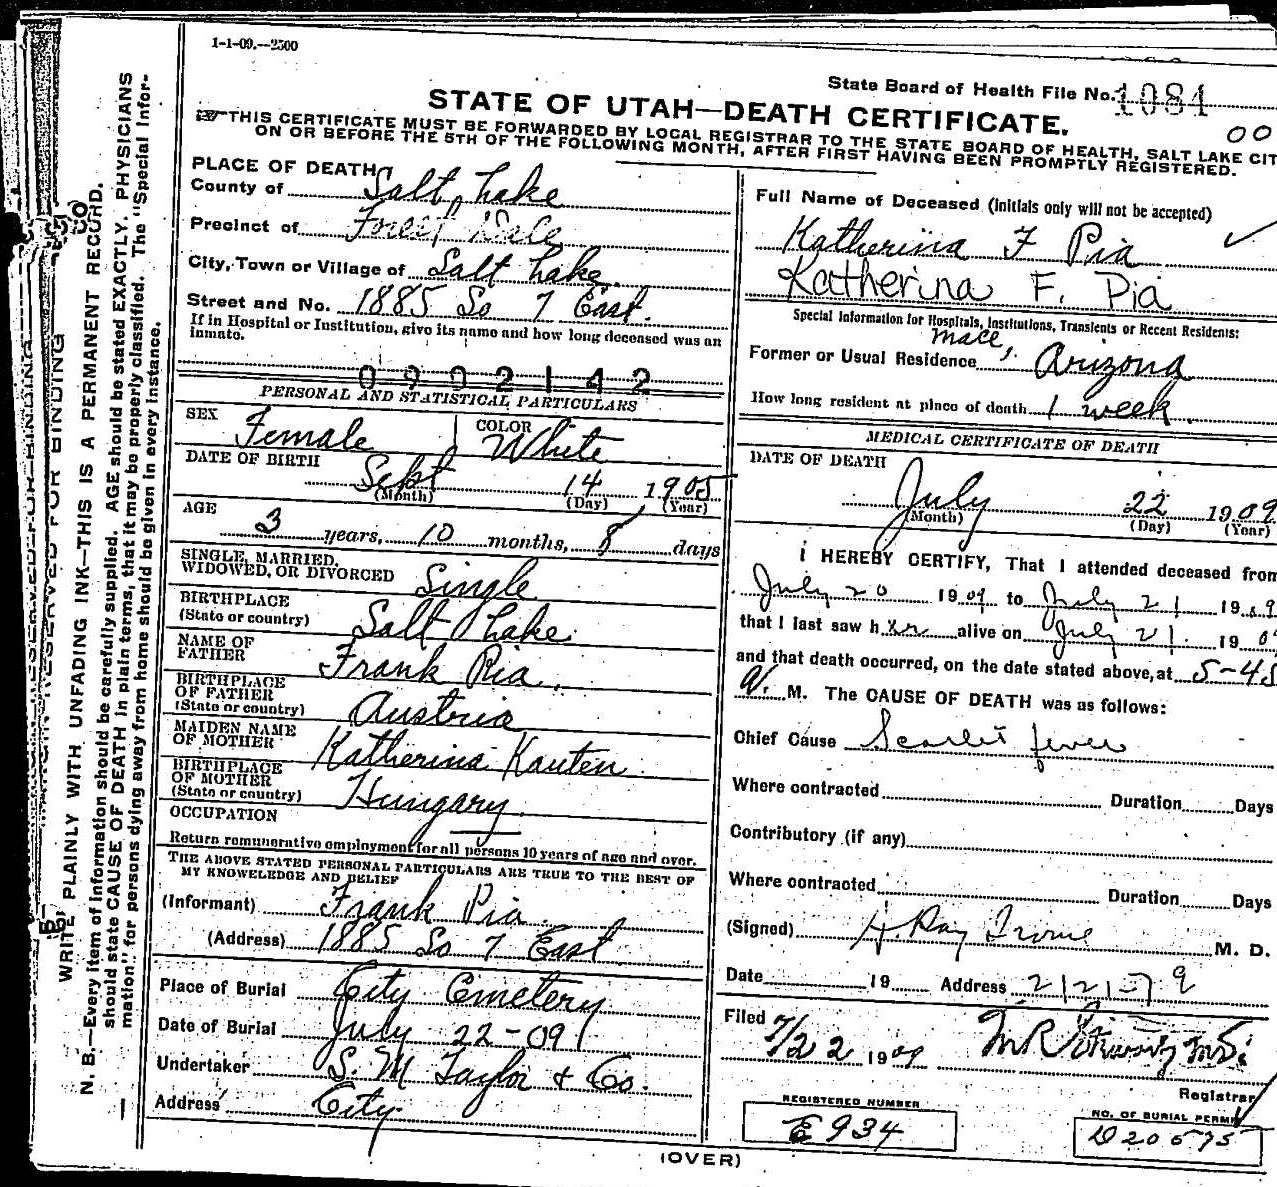 1-1-09.—2500
State Board of Health File No. 1084
STATE OF UTAH—DEATH CERTIFICATE.
00
THIS CERTIFICATE MUST BE FORWARDED BY LOCAL REGISTRAR TO THE STATE BOARD OF HEALTH, SALT LAKE CIT
ON OR BEFORE THE 5TH OF THE FOLLOWING MONTH, AFTER FIRST HAVING BEEN PROMPTLY REGISTERED.
PLACE OF DEATH
County of Salt Lake
Precinct of Forest Dale
City, Town or Village of Salt Lake
Street and No. 1885 So 7 East.
If in Hospital or Institution, give its name and how long deceased was an
inmate.
0902142
PERSONAL AND STATISTICAL PARTICULARS
SEX Female COLOR White
DATE OF BIRTH Sept 14 1905
(Month) (Day) (Year)
AGE 3 years, 10 months, 8 days
SINGLE, MARRIED,
WIDOWED, OR DIVORCED Single
BIRTHPLACE
(State or country) Salt Lake
NAME OF
FATHER Frank Pia.
BIRTHPLACE
OF FATHER
(State or country) Austria
MAIDEN NAME
OF MOTHER Katherina Kauten
BIRTHPLACE
OF MOTHER
(State or country) Hungary.
OCCUPATION
Return remunerative employment for all persons 10 years of age and over.
THE ABOVE STATED PERSONAL PARTICULARS ARE TRUE TO THE BEST OF
MY KNOWELEDGE AND BELIEF
(Informant) Frank Pia.
(Address) 1885 So 7 East
Place of Burial City Cemetery
Date of Burial July 22-09
Undertaker S. M Taylor & Co.
Address City
Full Name of Deceased (Initials only will not be accepted)
Katherina F Pia
Katherina F. Pia
Special Information for Hospitals, Institutions, Transients or Recent Residents:
Former or Usual Residence Mace, Arizona
How long resident at place of death 1 week
MEDICAL CERTIFICATE OF DEATH
DATE OF DEATH July 22 1909
(Month) (Day) (Year)
I HEREBY CERTIFY, That I attended deceased from
July 20 1909 to July 21 1909
that I last saw her alive on July 21. 190
and that death occurred, on the date stated above, at 5-45
a. M. The CAUSE OF DEATH was as follows:
Chief Cause Scarlet fever
Where contracted Duration Days
Contributory (if any)
Where contracted Duration Days
(Signed) H. Ray Irvine M. D.
Date 19 Address 212-
Filed 7/22 1909
Registrar
REGISTERED NUMBER
E934
NO. OF BURIAL PERMIT
D20575
(OVER)
RESERVED FOR BINDING
WRITE PLAINLY WITH UNFADING INK—THIS IS A PERMANENT RECORD.
N. B.—Every item of information should be carefully supplied. AGE should be stated EXACTLY. PHYSICIANS
should state CAUSE OF DEATH in plain terms, that it may be properly classified. The "Special Infor-
mation" for persons dying away from home should be given in every instance.